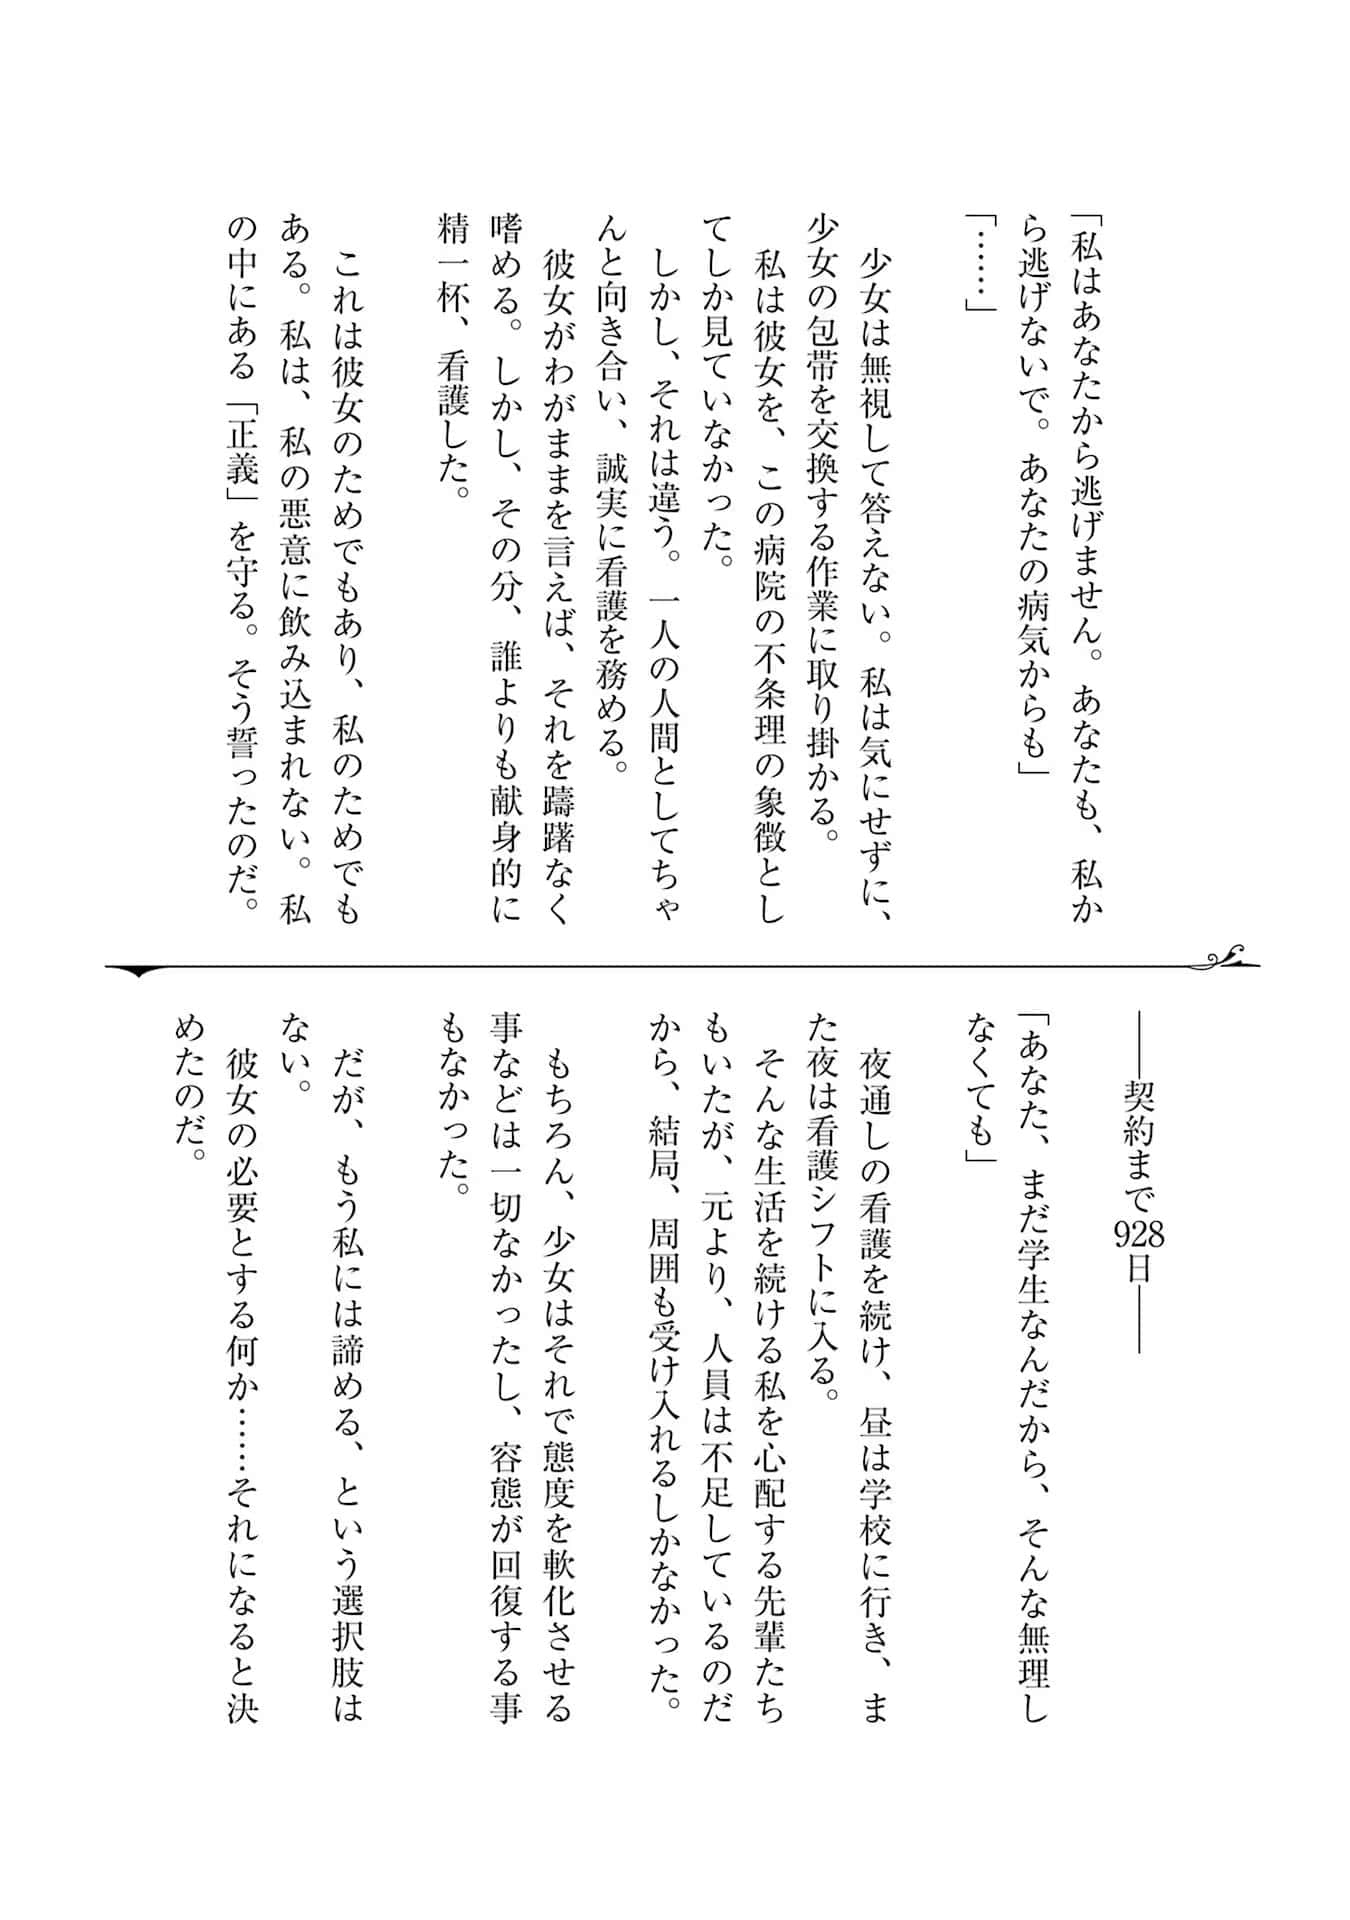 「私はあなたから逃げません。あなたも、私か
ら逃げないで。あなたの病気からも」
「……」
少女は無視して答えない。私は気にせずに、
少女の包帯を交換する作業に取り掛かる。
私は彼女を、この病院の不条理の象徴とし
てしか見ていなかった。
しかし、それは違う。一人の人間としてちゃ
んと向き合い、誠実に看護を務める。
彼女がわがままを言えば、それを躊躇なく
嗜める。しかし、その分、誰よりも献身的に
精一杯、看護した。
これは彼女のためでもあり、私のためでも
ある。私は、私の悪意に飲み込まれない。私
の中にある「正義」を守る。そう誓ったのだ。
――契約まで928日――
「あなた、まだ学生なんだから、そんな無理し
なくても」
夜通しの看護を続け、昼は学校に行き、ま
た夜は看護シフトに入る。
そんな生活を続ける私を心配する先輩たち
もいたが、元より、人員は不足しているのだ
から、結局、周囲も受け入れるしかなかった。
もちろん、少女はそれで態度を軟化させる
事などは一切なかったし、容態が回復する事
もなかった。
だが、もう私には諦める、という選択肢は
ない。
彼女の必要とする何か……それになると決
めたのだ。